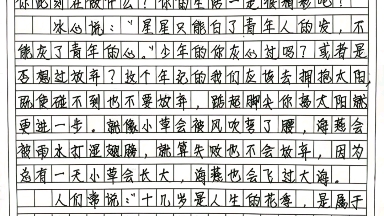 你此刻在做什么？你的生活一定很精彩吧！
冰心说：“星星只能白了青年人的发，不
能灰了青年的心。”少年的你灰心过吗？或者是
否想过放弃？这个年纪的我们应该去拥抱太阳，
即便碰不到也不要放弃，踮起脚尖你离太阳就
更进一步。就像小草会被风吹弯了腰，海燕会
被雨水打湿翅膀，就算失败也不会放弃，因为
总有一天小草会长大，海燕也会飞过大海。
人们常说：“十几岁是人生的花季，是属于